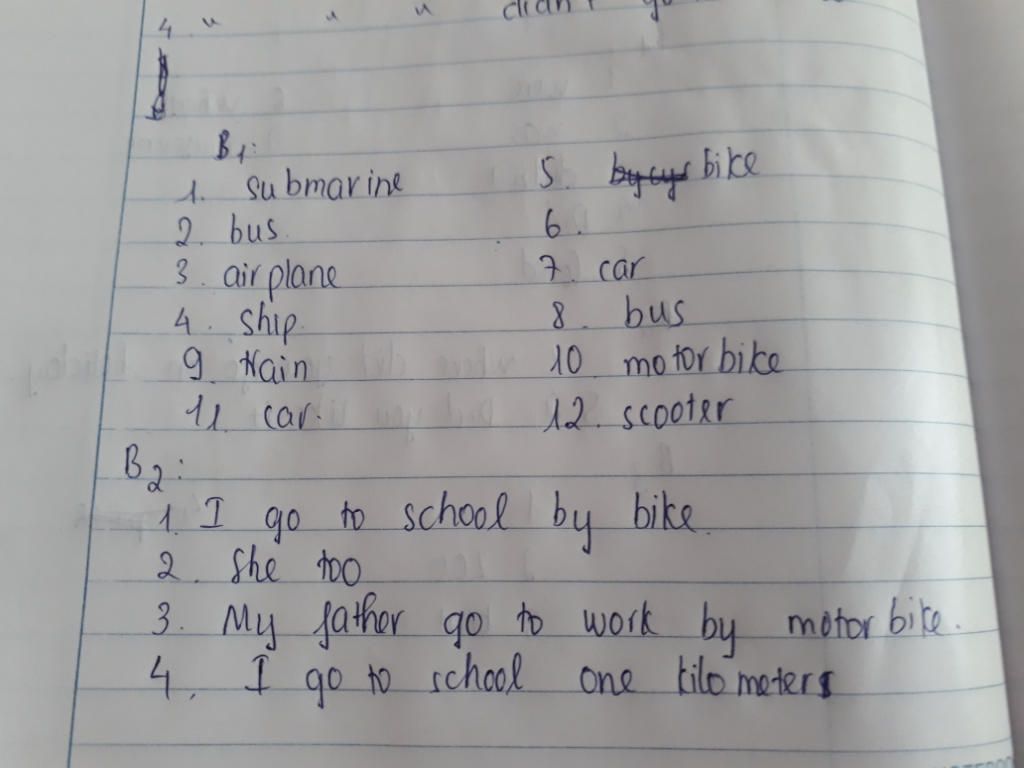 4. " " " didn't go
B1:
1. submarine 5. bike
2. bus. 6.
3. airplane 7. car
4. ship. 8. bus
9. train 10 motorbike
11. car. 12. scooter
B2:
1. I go to school by bike.
2. She too
3. My father go to work by motorbike.
4. I go to school one kilometers